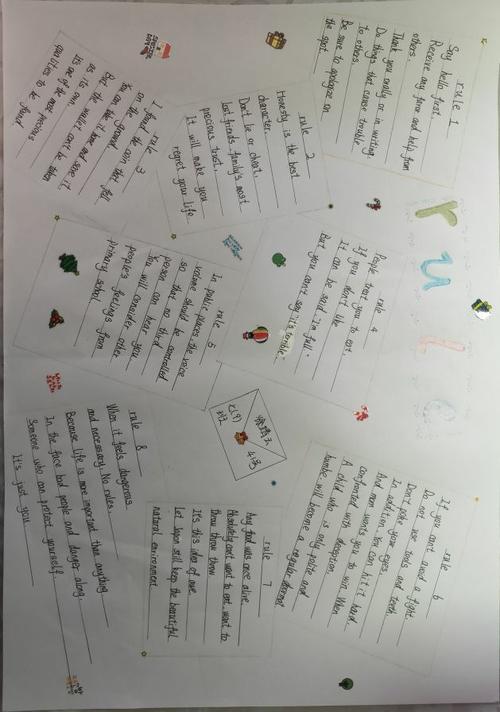 rule 1
Say hello first.
Receive any favor and help from
others.
Thank you orally or in writing.
Do things that cause trouble
to others.
Be sure to apologize on
the spot.
rule 2
Honesty is the best
character.
Don't lie or cheat.
Lost friends, family's most
precious trust.
It will make you
regret your life.
rule 3
I found the coin that fell
on the ground.
You can take it home and save it
But the wallet can't be taken
as its own.
It's one of the most precious
qualities to be found
rule 4
People treat you to eat.
If you don't like
It can be said I'm full.
But you can't say "it's terrible"
In rule 5
public places, the voice
volume should be controlled
so that no third
person can hear
You will consider other
people's feelings from
primary school.
rule 6
If you can't avoid a fight.
Do not use tools and teeth.
Don't poke your eyes.
In addition you can hit it hard.
And mom wants you to win when
confronted with deception.
A child who is only polite and
humble will become a regular
rule 7
Any food was once alive.
Absolutely can't want to eat, want to
throw throw throw
It's this idea of awe.
Let Japan still keep the beautiful
natural environment.
rule 8
When it feels dangerous
and necessary. No rules.
Because life is more important than anything.
In the face bad people and danger along.
Someone who can protect yourself.
It's just you
r
u
l
e